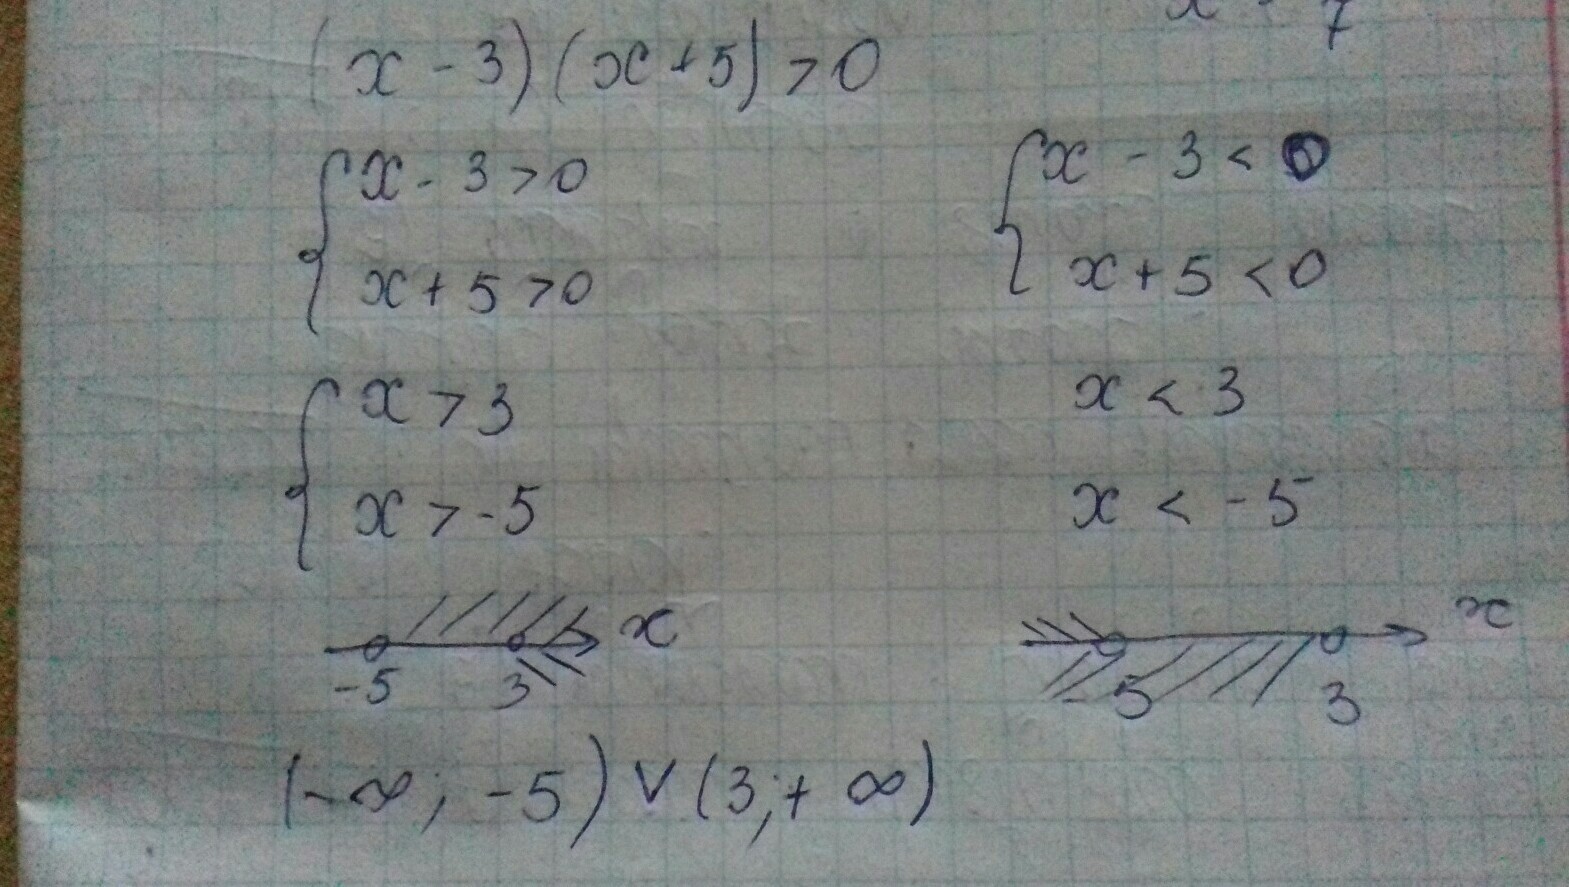 x - 7
(x - 3)(x + 5) > 0
{ x - 3 > 0
x + 5 > 0
{ x - 3 < 0
x + 5 < 0
{ x > 3
x > -5
x < 3
x < -5
-5 3 x
-5 3 x
(-∞; -5) ∨ (3; + ∞)